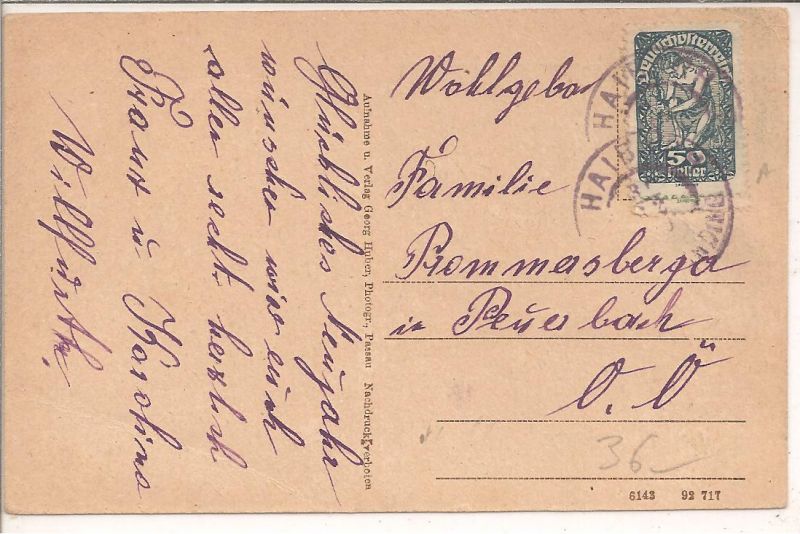 Glückliches Neujahr
wünschen wir euch
allen recht herzlich
Franz u. Karolina
Willfurth.
Aufnahme u. Verlag Georg Huber, Photogr., Passau Nachdruck verboten
Wohlgebor
Familie
Prommasberga
in Peuerbach
O. Ö
Deutschösterreich
50
Heller
HAI
HAI
36
6143 92 717